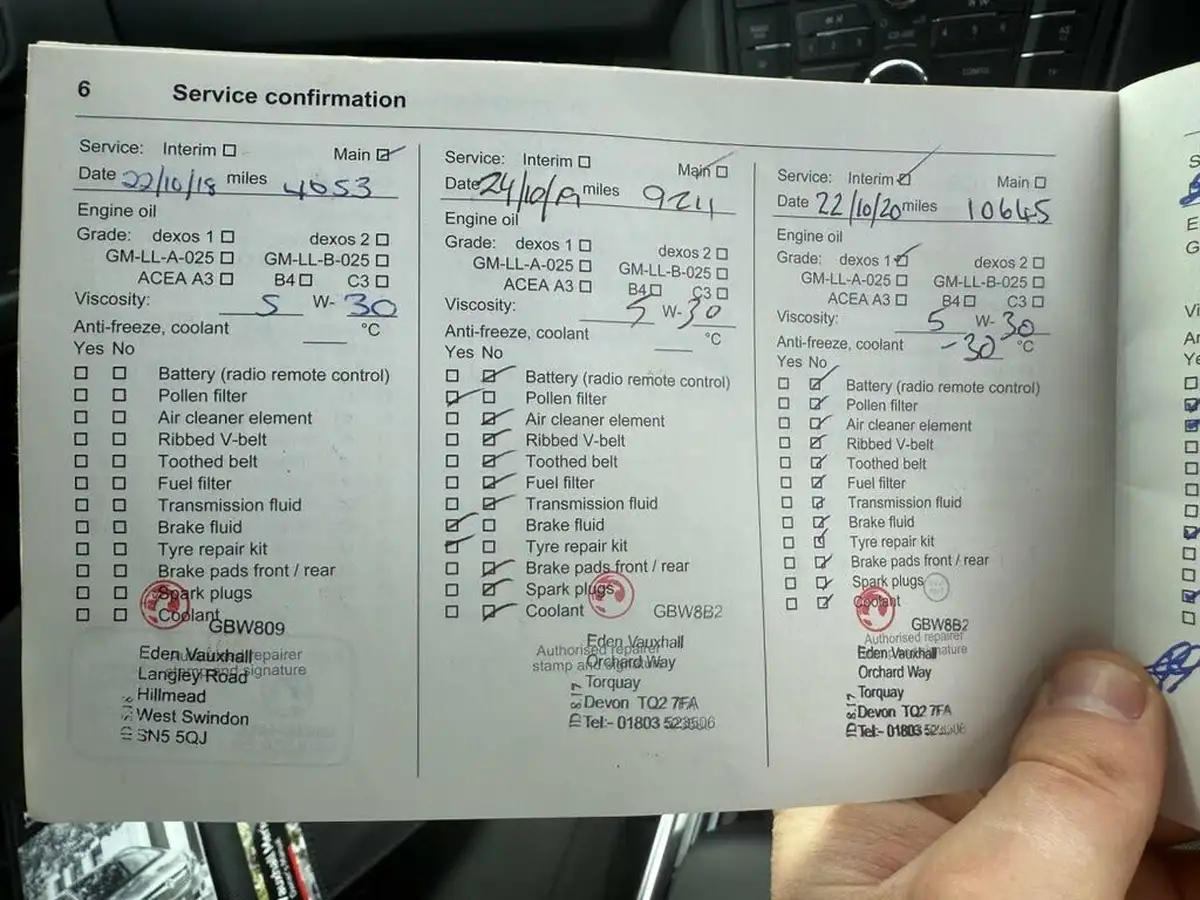 6 Service confirmation
Service: Interim Main
Date 22/10/18 miles 4053
Engine oil
Grade: dexos 1 dexos 2
GM-LL-A-025 GM-LL-B-025
ACEA A3 B4 C3
Viscosity: 5 W- 30
Anti-freeze, coolant °C
Yes No
Battery (radio remote control)
Pollen filter
Air cleaner element
Ribbed V-belt
Toothed belt
Fuel filter
Transmission fluid
Brake fluid
Tyre repair kit
Brake pads front / rear
Spark plugs
Coolant
GBW809
Authorised repairer
stamp and signature
Eden Vauxhall
Langley Road
Hillmead
West Swindon
SN5 5QJ
Service: Interim Main
Date 24/10/19 miles 9211
Engine oil
Grade: dexos 1 dexos 2
GM-LL-A-025 GM-LL-B-025
ACEA A3 B4 C3
Viscosity: 5 W- 30
Anti-freeze, coolant °C
Yes No
Battery (radio remote control)
Pollen filter
Air cleaner element
Ribbed V-belt
Toothed belt
Fuel filter
Transmission fluid
Brake fluid
Tyre repair kit
Brake pads front / rear
Spark plugs
Coolant
GBW8B2
Authorised repairer
stamp and signature
Eden Vauxhall
Orchard Way
Torquay
Devon TQ2 7FA
Tel:- 01803 523506
Service: Interim Main
Date 22/10/20 miles 10645
Engine oil
Grade: dexos 1 dexos 2
GM-LL-A-025 GM-LL-B-025
ACEA A3 B4 C3
Viscosity: 5 W- 30
Anti-freeze, coolant -30 °C
Yes No
Battery (radio remote control)
Pollen filter
Air cleaner element
Ribbed V-belt
Toothed belt
Fuel filter
Transmission fluid
Brake fluid
Tyre repair kit
Brake pads front / rear
Spark plugs
Coolant
GBW8B2
Authorised repairer
stamp and signature
Eden Vauxhall
Orchard Way
Torquay
Devon TQ2 7FA
Tel:- 01803 523506